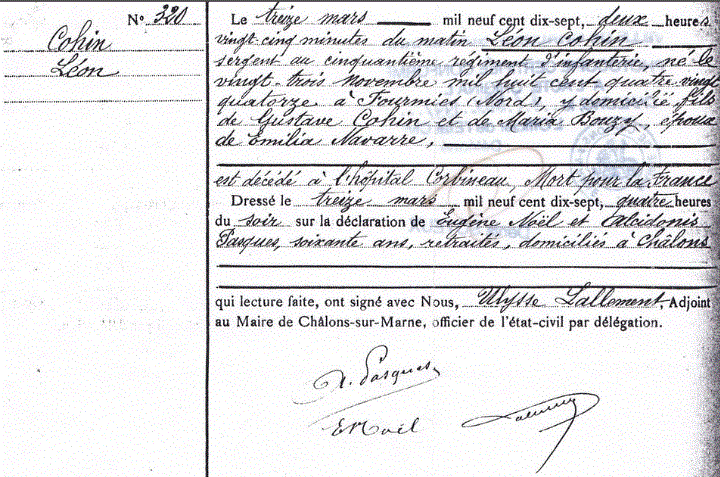 N° 320
Cohin
Léon
Le treize mars mil neuf cent dix-sept, deux heures
vingt cinq minutes du matin Léon Cohin
sergent au cinquantième régiment d'infanterie, né le
vingt-trois Novembre mil huit cent quatre vingt
quatorze à Fourmies (Nord), y domicilié fils
de Gustave Cohin et de Maria Bouzy, époux
de Emilia Navarre,
est décédé à l'hôpital Corbineau, Mort pour la France
Dressé le treize mars mil neuf cent dix-sept, quatre heures
du soir sur la déclaration de Eugène Noël et Alcidonis
Pasques, soixante ans, retraités, domiciliés à Châlons
qui lecture faite, ont signé avec Nous, Ulysse Lallement, Adjoint
au Maire de Châlons-sur-Marne, officier de l'état-civil par délégation.
A. Pasques
E Noël